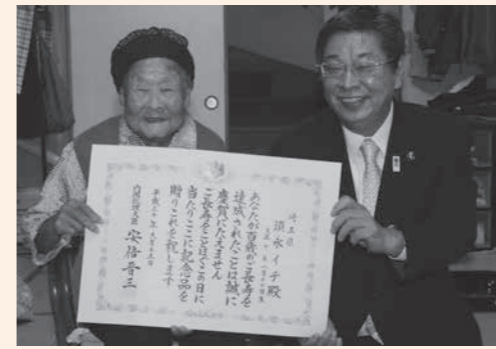 埼玉県
須永イチ殿
あなたが百歳のご長寿を
達成されたことは誠に
慶賀にたえません
ご長寿をことほぐこの日に
当たりここに記念品を
贈りこれを祝します
内閣総理大臣 安倍晋三